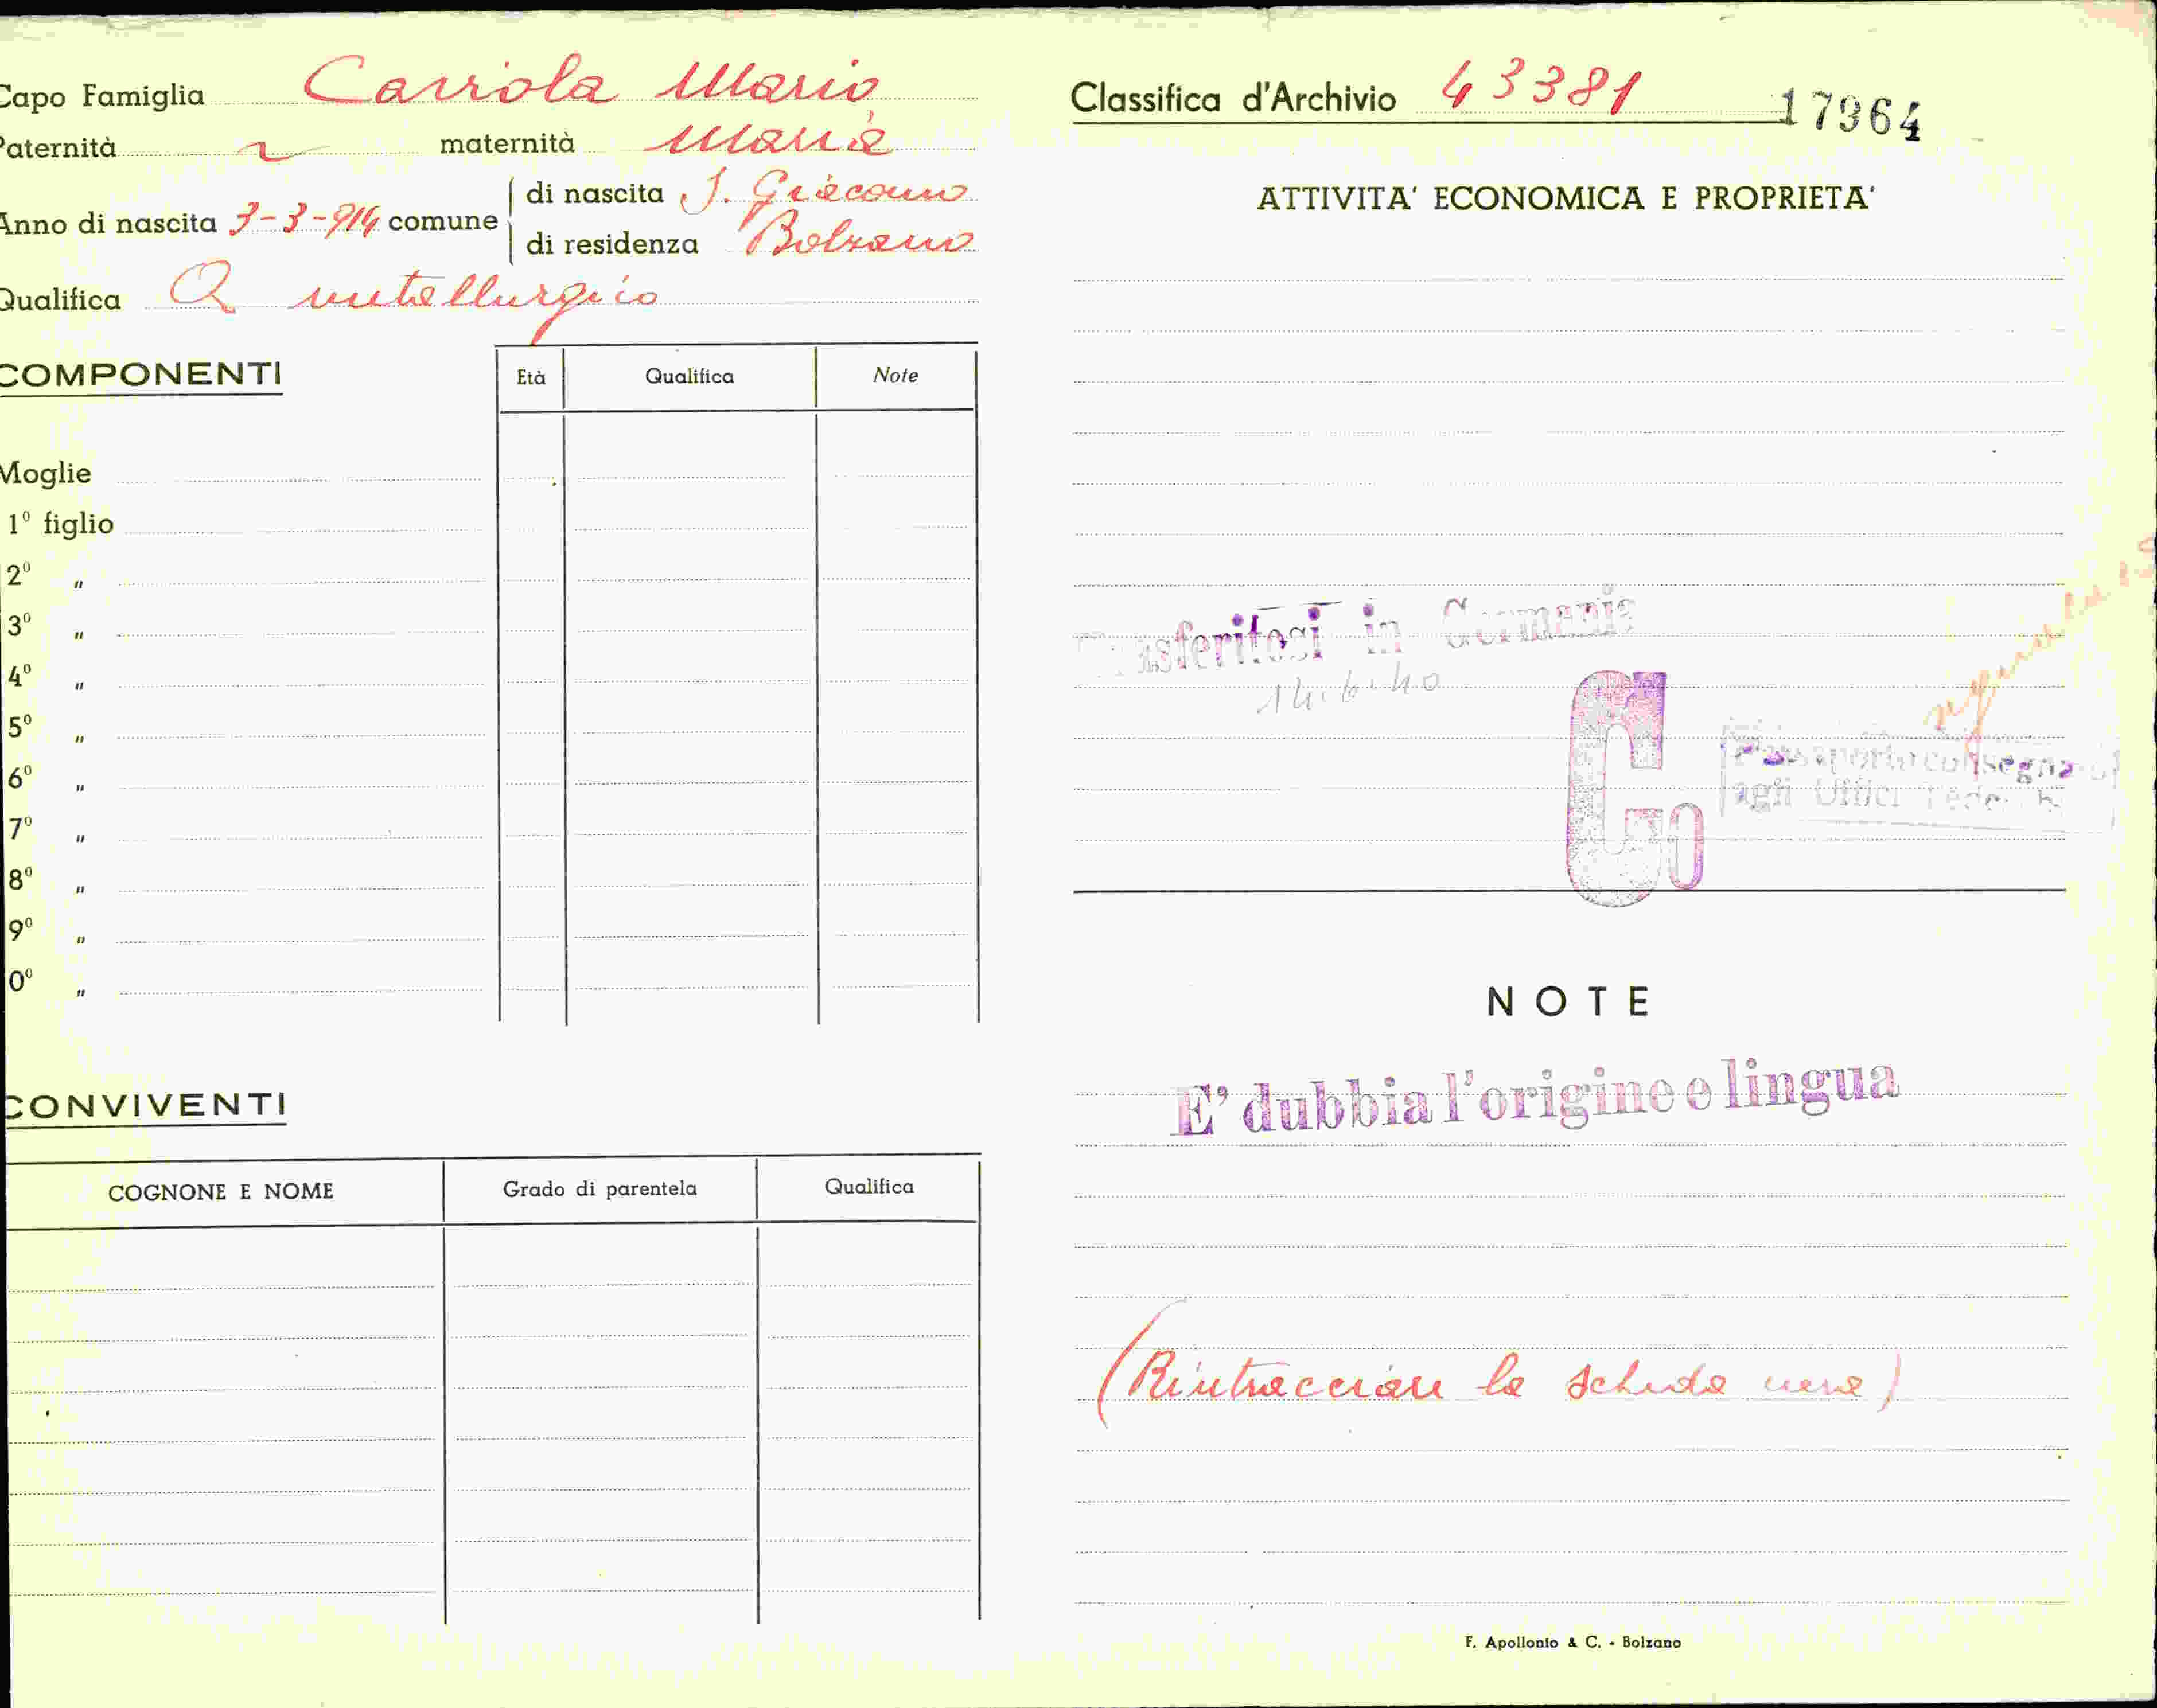 Capo Famiglia Carriola Mario
Paternità ~ maternità Maria
Anno di nascita 3-3-914 comune di nascita S. Giacomo
di residenza Bolzano
Qualifica O metallurgico
COMPONENTI Età Qualifica Note
Moglie
1º figlio
2º "
3º "
4º "
5º "
6º "
7º "
8º "
9º "
0º "
CONVIVENTI
COGNONE E NOME Grado di parentela Qualifica
Classifica d'Archivio 43381 17964
ATTIVITA' ECONOMICA E PROPRIETA'
Trasferitosi in Germania
14.6.40
G
Passaporto consegnato
agli Uffici
NOTE
E' dubbia l'origine e lingua
(Rintracciare la scheda nera)
F. Apollonio & C. - Bolzano